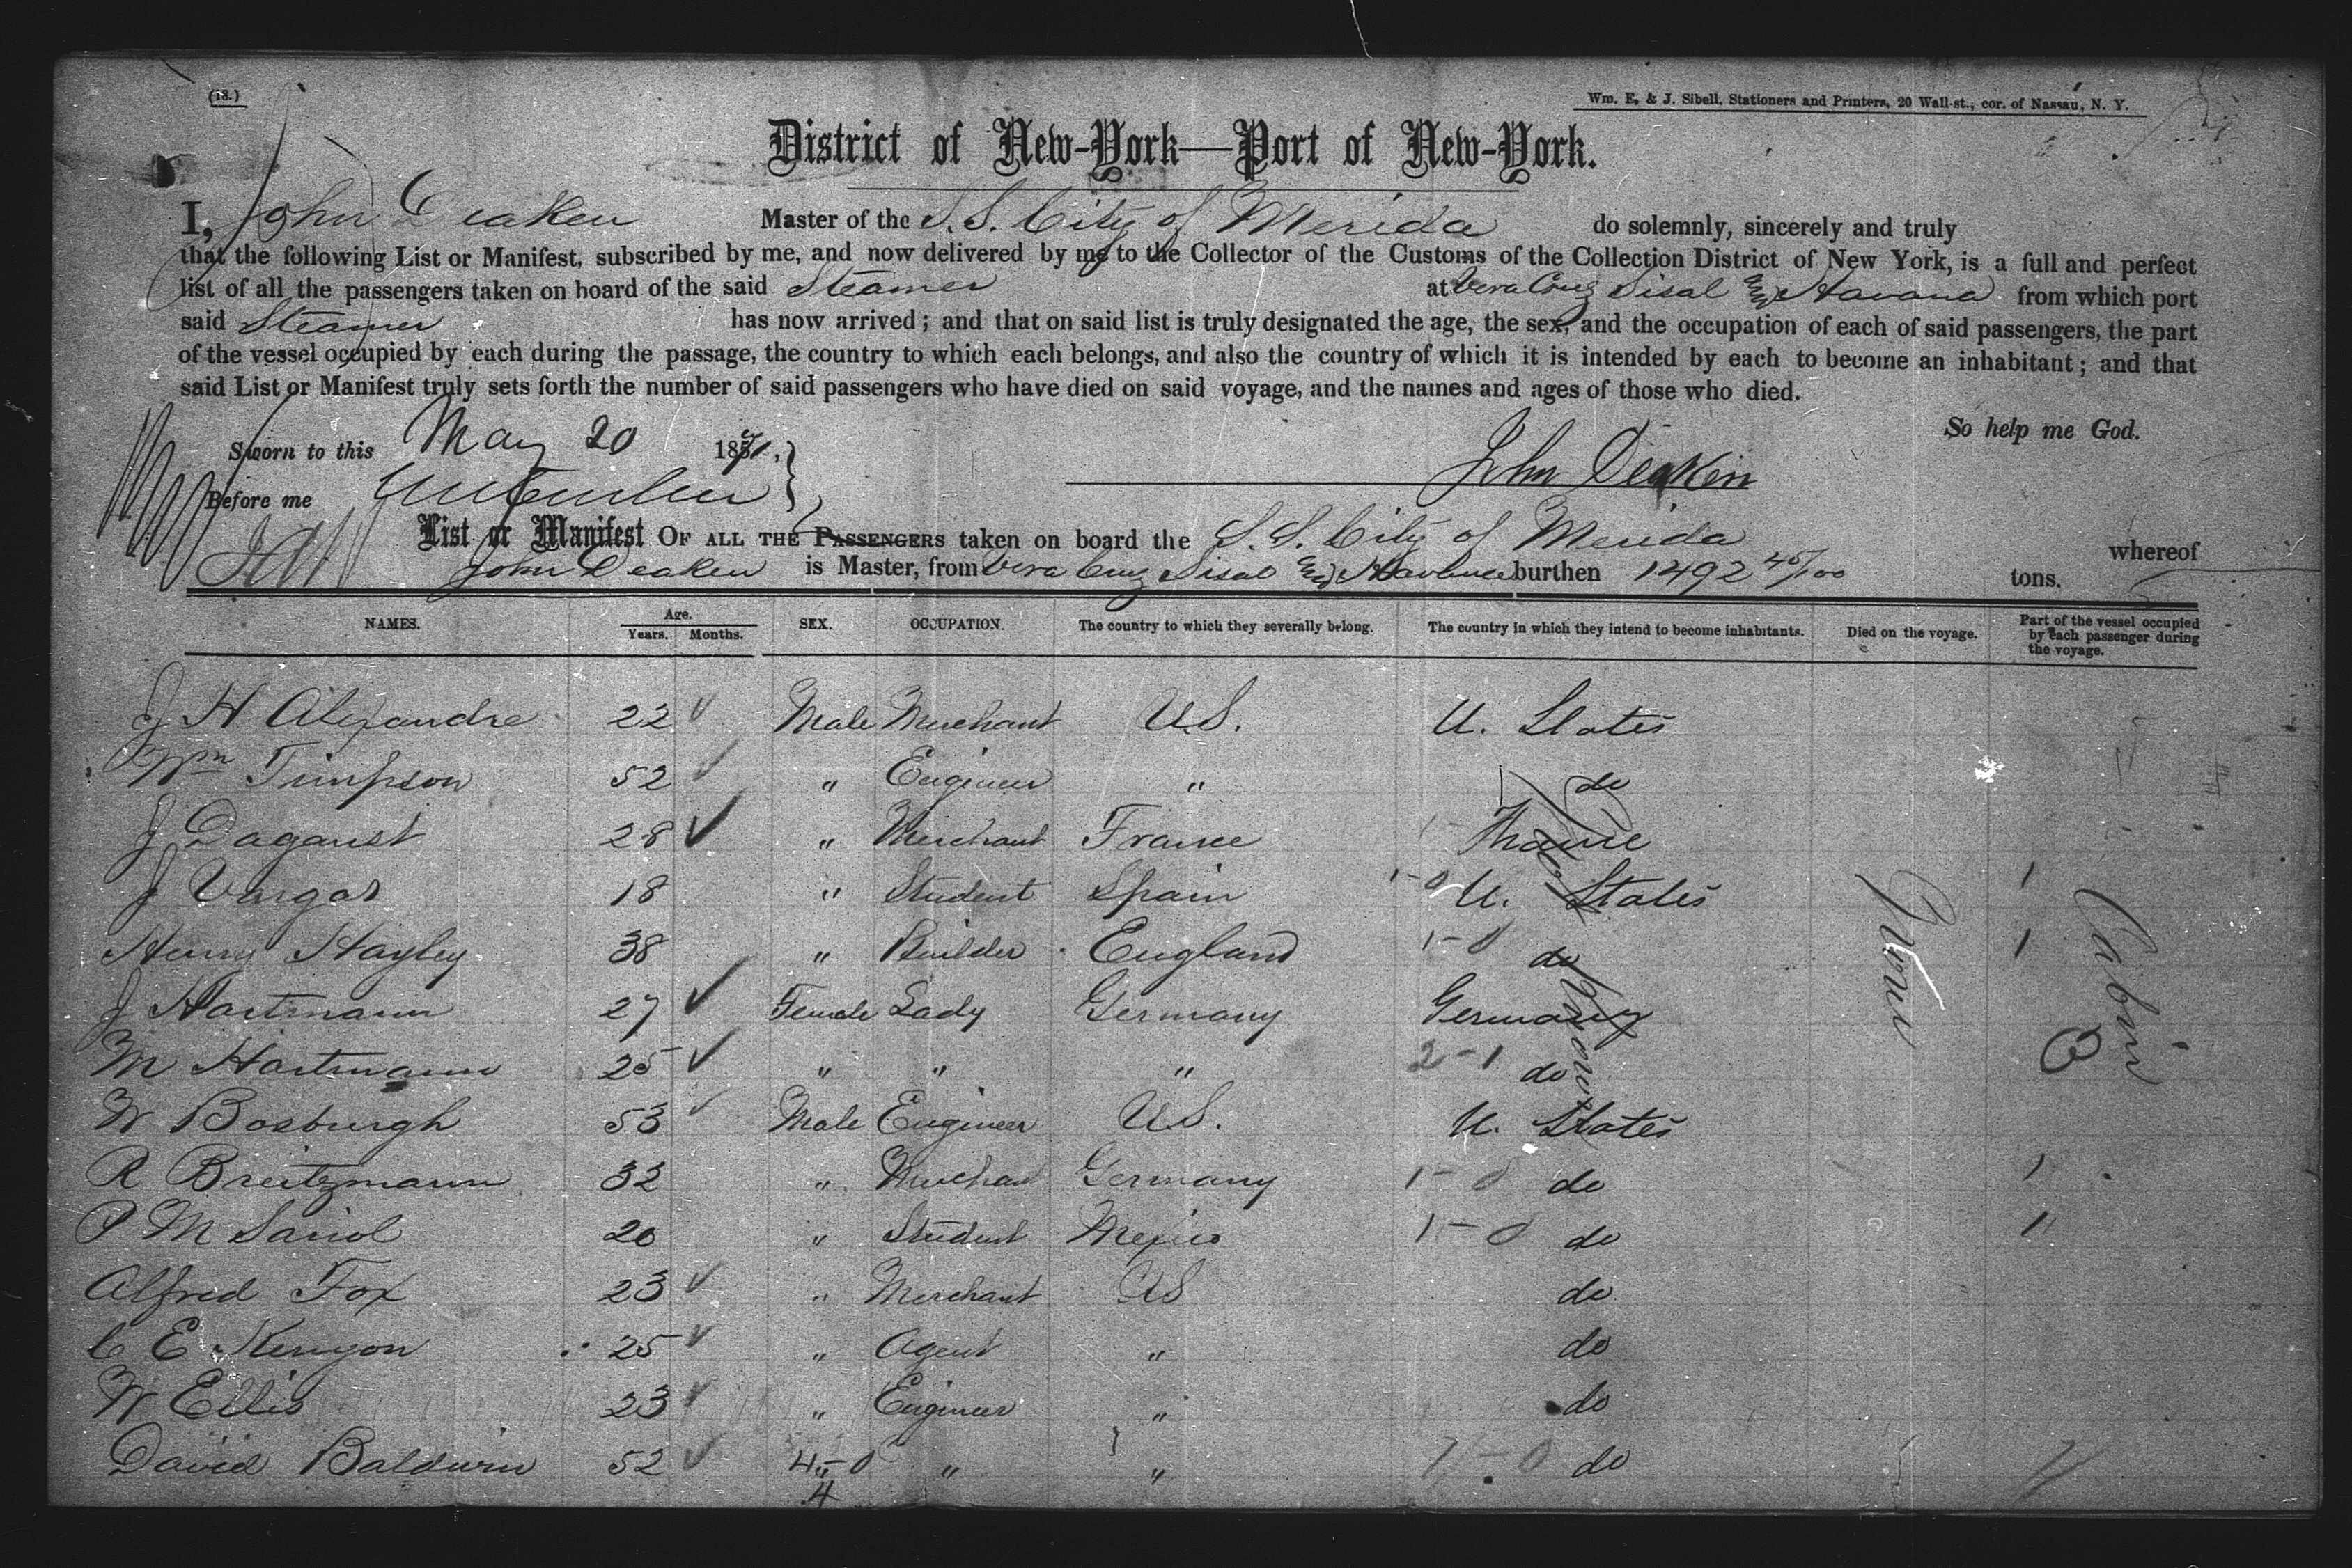 (18.)
Wm. E. & J. Sibell, Stationers and Printers, 20 Wall-st., cor. of Nassau, N. Y.
District of New-York—Port of New-York.
I, John Deaken Master of the S. S. City of Merida do solemnly, sincerely and truly
that the following List or Manifest, subscribed by me, and now delivered by me to the Collector of the Customs of the Collection District of New York, is a full and perfect
list of all the passengers taken on board of the said Steamer at Vera Cruz Sisal and Havana from which port
said Steamer has now arrived; and that on said list is truly designated the age, the sex, and the occupation of each of said passengers, the part
of the vessel occupied by each during the passage, the country to which each belongs, and also the country of which it is intended by each to become an inhabitant; and that
said List or Manifest truly sets forth the number of said passengers who have died on said voyage, and the names and ages of those who died.
So help me God.
Sworn to this May 20 1871,
John Deaken
Before me
List or Manifest OF ALL THE PASSENGERS taken on board the S. S. City of Merida whereof
John Deaken is Master, from Vera Cruz Sisal and Havana burthen 1492 45/100 tons.
NAMES. Age. Years. Months. SEX. OCCUPATION. The country to which they severally belong. The country in which they intend to become inhabitants. Died on the voyage. Part of the vessel occupied by each passenger during the voyage.
J H Alexandre 22 Male Merchant U.S. U. States
Wm Timpson 52 " Engineer " do
J Daganst 28 " Merchant France France
J Vargas 18 " Student Spain 1-0 U. States 1
Henry Hayley 38 " Builder England 1-0 do 1
J Hartmann 27 Female Lady Germany Germany
M Hartmann 25 " " " 2-1 do 3
W Bosburgh 53 Male Engineer U.S. U. States
R Breitzmann 32 " Merchant Germany 1-0 do 1
P M Sariol 20 " Student Mexico 1-0 do 1
Alfred Fox 23 " Merchant US do
C E Kenyon 25 " Agent " do
W Ellis 23 " Engineer " do
David Baldwin 52 " " " 7-0 do 7
4-0
4
None
Cabin